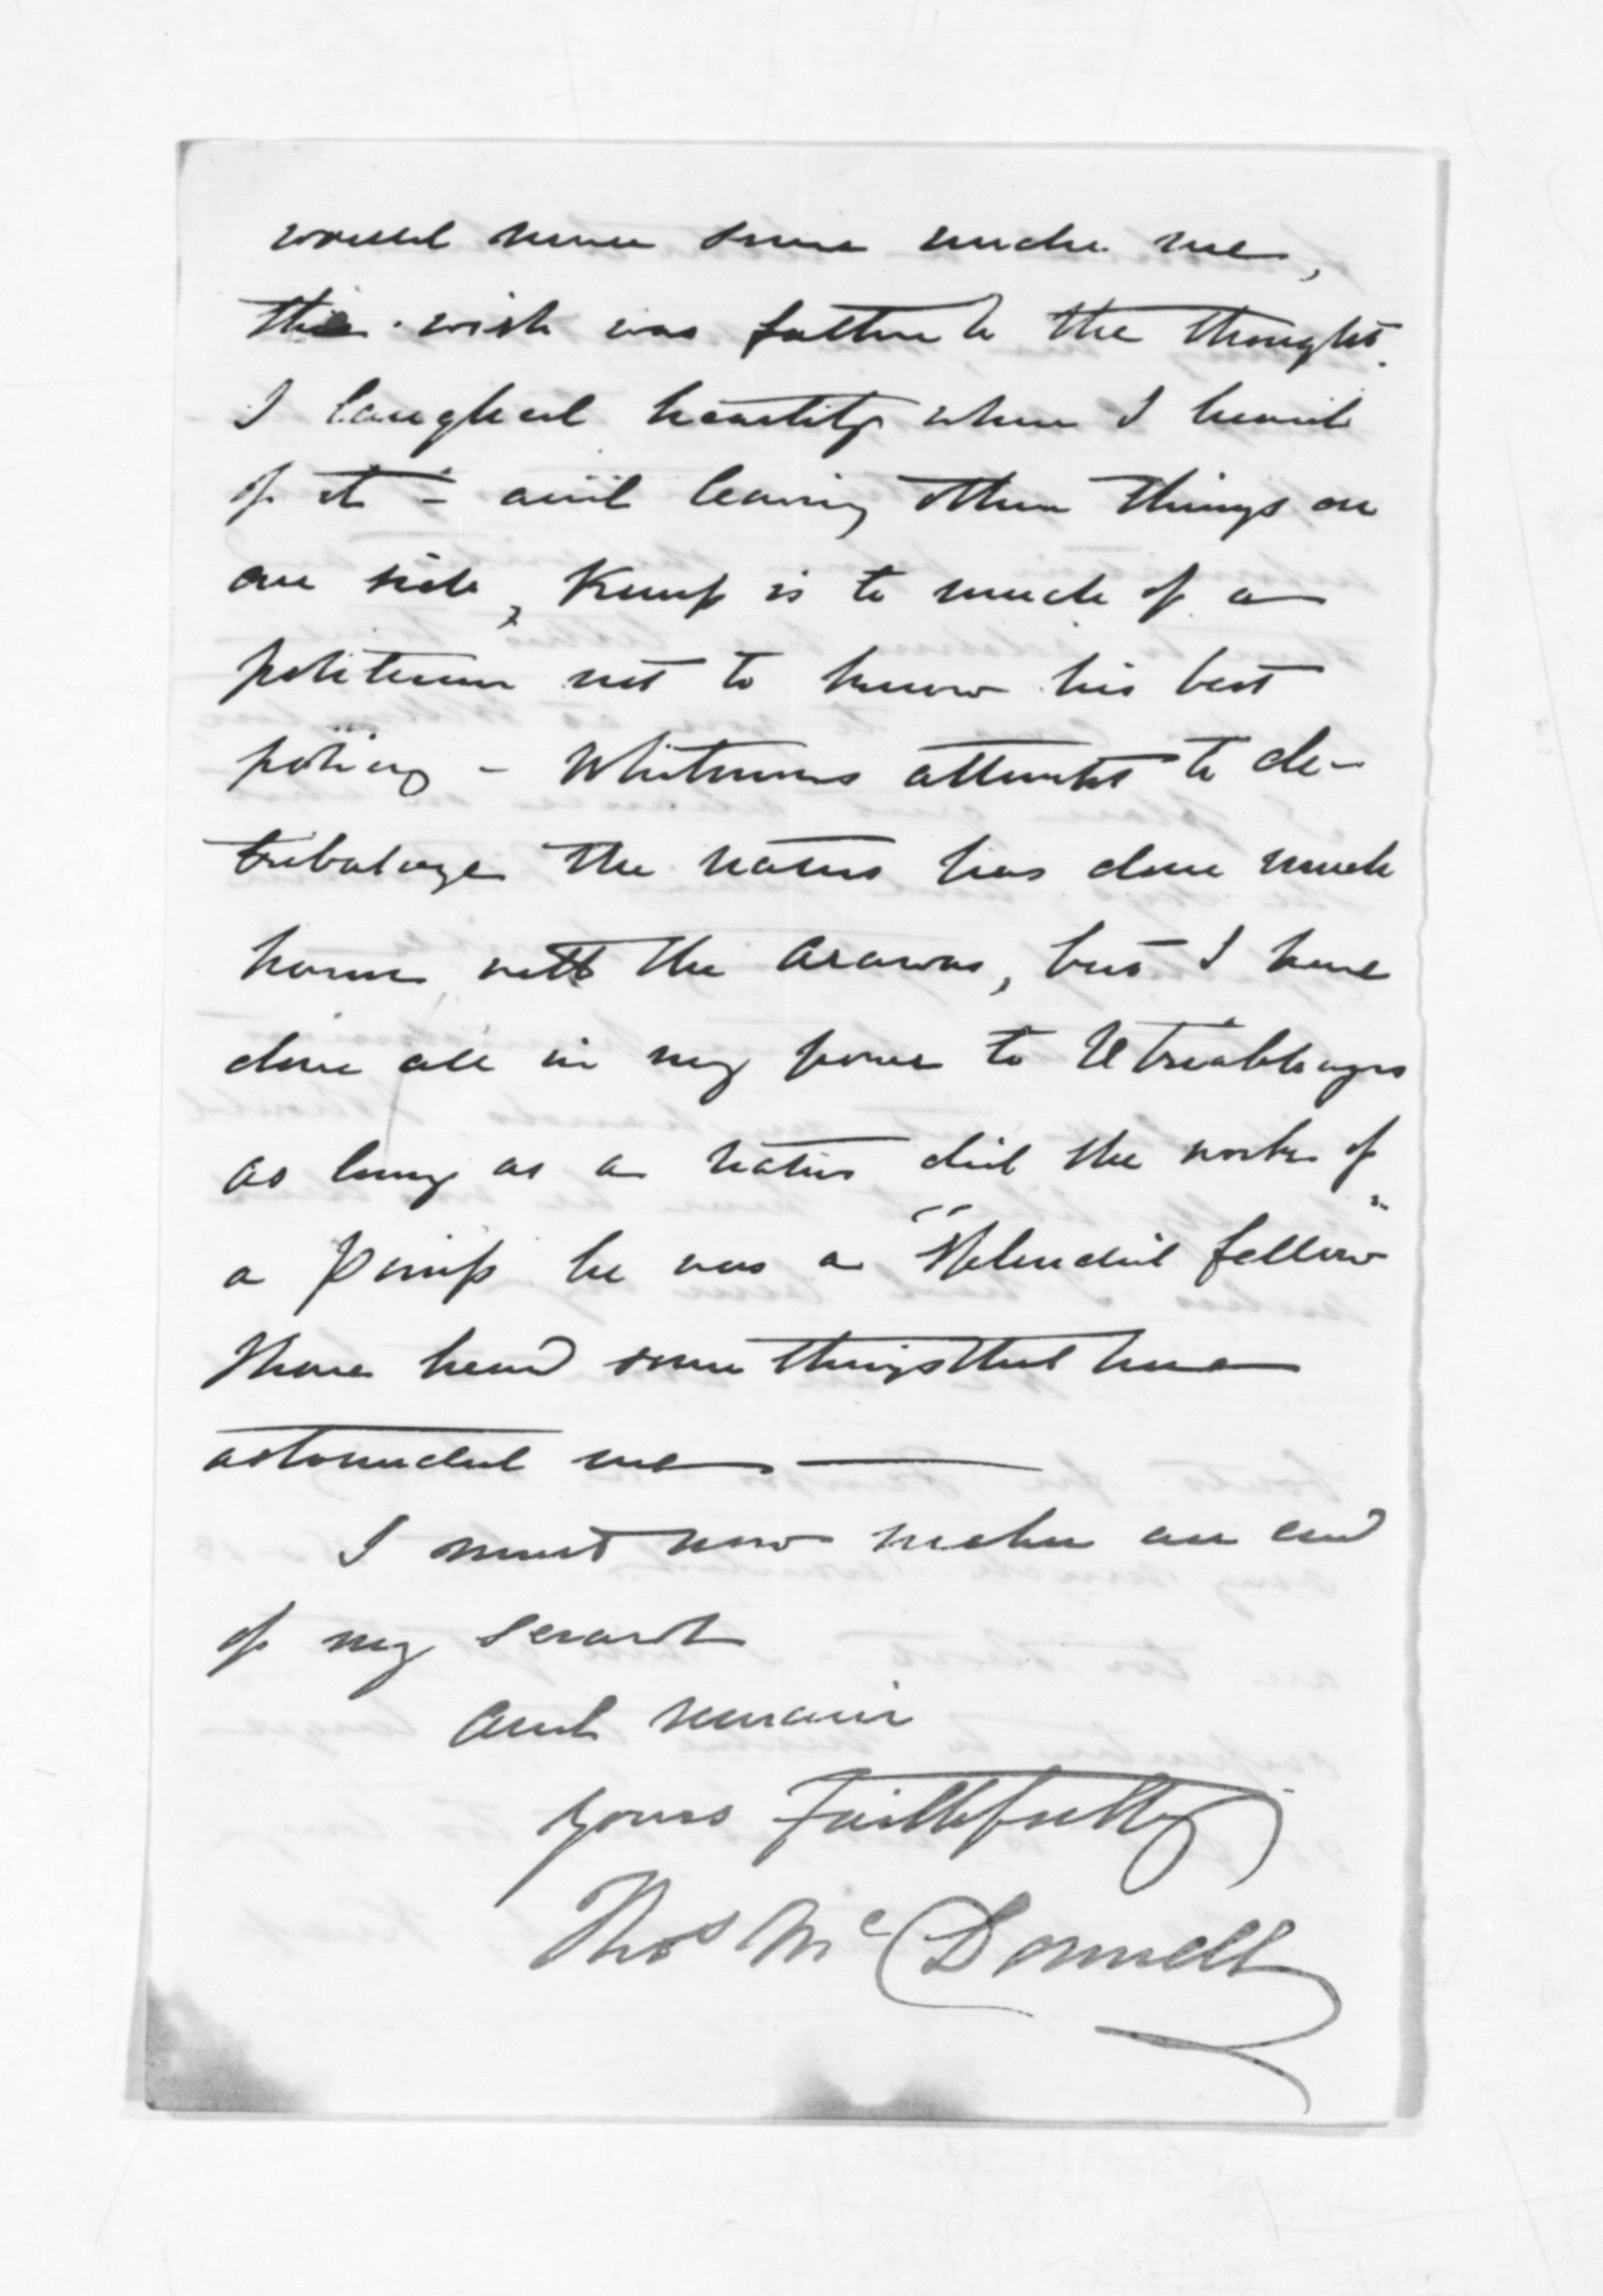 would never serve under me,
the wish was father to the thought.
I laughed heartily when I heard
of it - and leaving other things on
one side, Kemp is to much of a
politician not to know his best
policy - Whitmores attempts to de-
tribalize the natives has done much
harm with the Arawas, but I have
done all in my power to
as long as a native did the work of
a Pimp he was a "Splendid fellow"
I have heard some things that have
astounded me
I must now make an end
of my
and remain
Yours Faithfully
Thos McDonnell